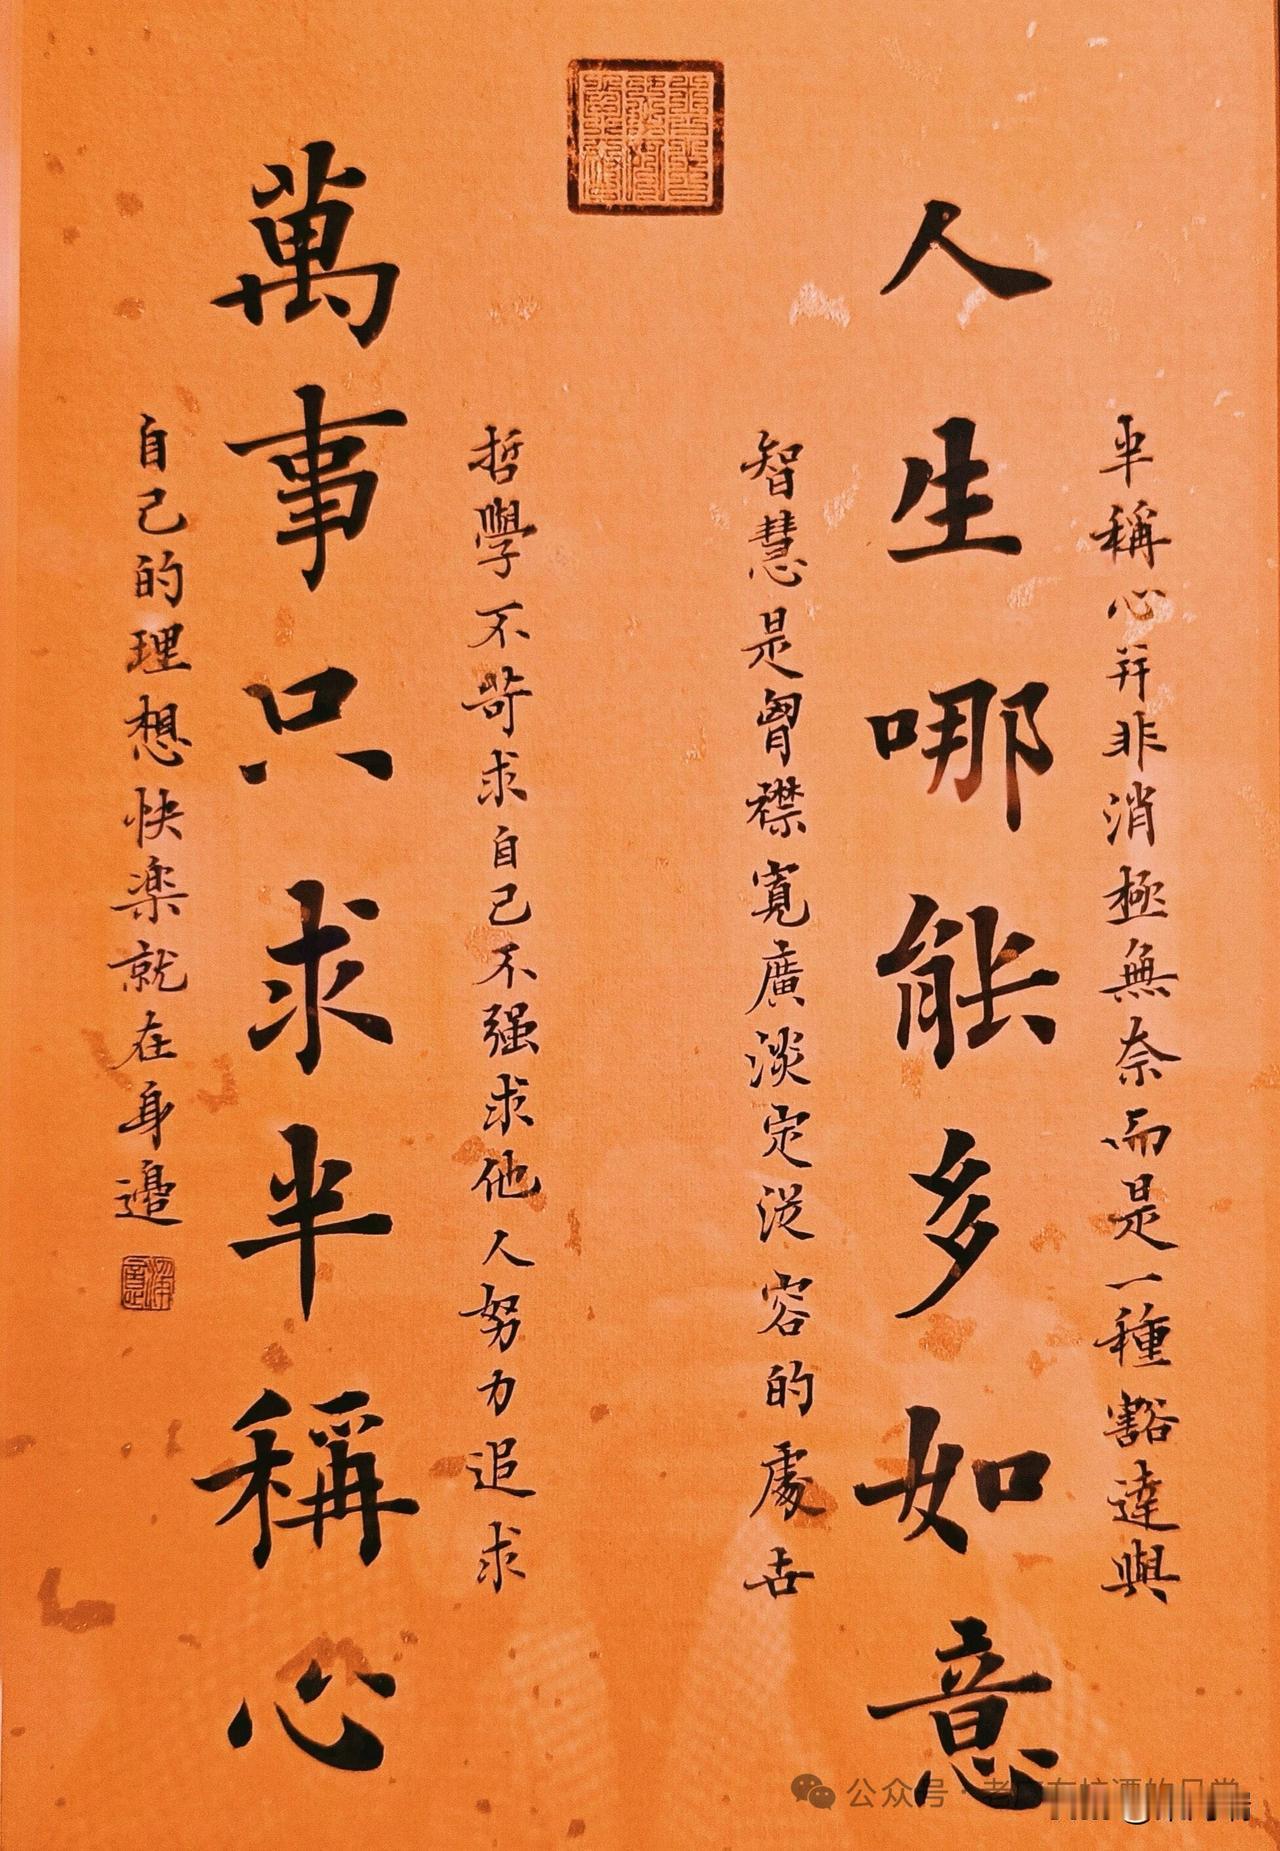 半稱心并非消極無奈而是一種豁達與
人生哪能多如意
智慧是胷襟寬廣淡定從容的處世
哲學不苛求自己不强求他人努力追求
萬事只求半稱心
自己的理想快楽就在身邊
公众号